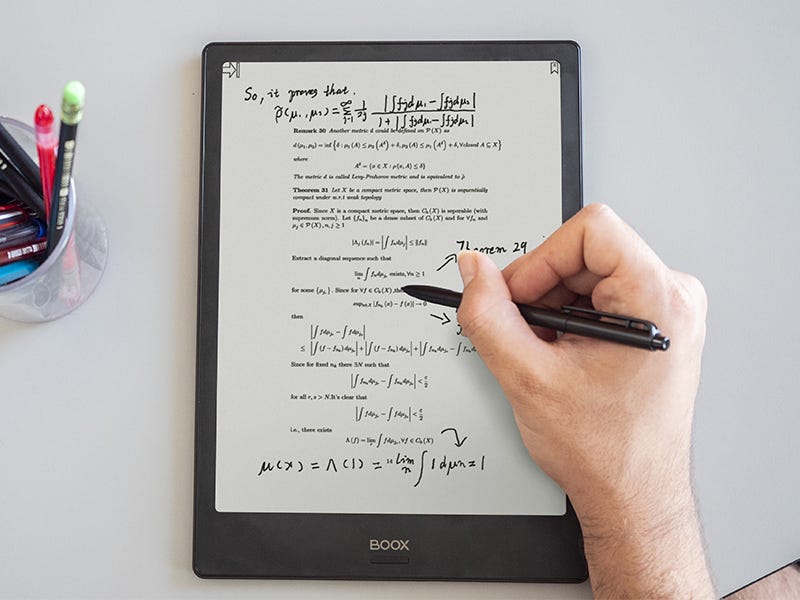 So, it proves that.
ρ̃(μ₁, μ₂) = ∑_{j=1}^{∞} 1/2ʲ |∫fⱼdμ₁ − ∫fⱼdμ₂| / 1 + |∫fⱼdμ₁ − ∫fⱼdμ₂|
Remark 30 Another metric d could be defined on P (X) as
d (μ₁, μ₂) = inf {δ : μ₁ (A) ≤ μ₂ (A^δ) + δ, μ₂ (A) ≤ μ₁ (A^δ) + δ, ∀closed A ⊆ X}
where
A^δ = {x ∈ X : ρ (x, A) ≤ δ}
The metric d is called Levy-Prohorov metric and is equivalent to ρ̃
Theorem 31 Let X be a compact metric space, then P (X) is sequentially
compact under w.r.t weak topology
Proof. Since X is a compact metric space, then C_b (X) is seperable (with
supremum norm). Let {f_n}_n be a dense subset of C_b (X) and for ∀f_n and
μ_j ∈ P (X), n, j ≥ 1
|Λ_j (f_n)| = |∫ f_n dμ_j| ≤ ‖f_n‖
Theorem 29
Extract a diagonal sequence such that
lim ∫ f_n dμ_{j_r} exists, ∀n ≥ 1
for some {μ_{j_r}}. Since for ∀f ∈ C_b (X),
sup_{x∈X} |f_{n_k} (x) − f (x)| → 0
then
|∫ f dμ_{j_r} − ∫ f dμ_{j_s}|
≤ |∫ (f − f_{n_k}) dμ_{j_r}| + |∫ (f − f_{n_k}) dμ_{j_s}| + |∫ f_{n_k} dμ_{j_r} −
Since for fixed n_k there ∃N such that
|∫ f_{n_k} dμ_{j_r} − ∫ f_{n_k} dμ_{j_s}| < ε/2
for all r, s > N. It's clear that
|∫ f dμ_{j_r} − ∫ f dμ_{j_s}| < ε/2
i.e., there exists
Λ (f) = lim ∫ f dμ_{j_r}, ∀f ∈ C_b (X)
μ(X) = Λ(1) = lim_n ∫ 1 dμn = 1
BOOX